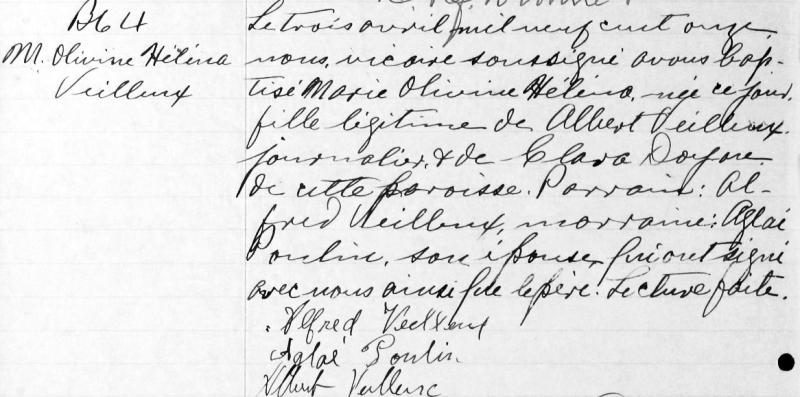 B64
M. Olivine Héléna
Veilleux
Le trois avril mil neuf cent onze,
nous, vicaire soussigné avons bap-
tisé Marie Olivine Héléna, née ce jour,
fille légitime de Albert Veilleux,
journalier, & de Clara Doyon
de cette paroisse. Parrain: Al-
fred Veilleux, marraine: Aglaé
Poulin, son épouse, qui ont signé
avec nous ainsi que le père. Lecture faite.
Alfred Veilleux
Aglaé Poulin
Albert Veilleux